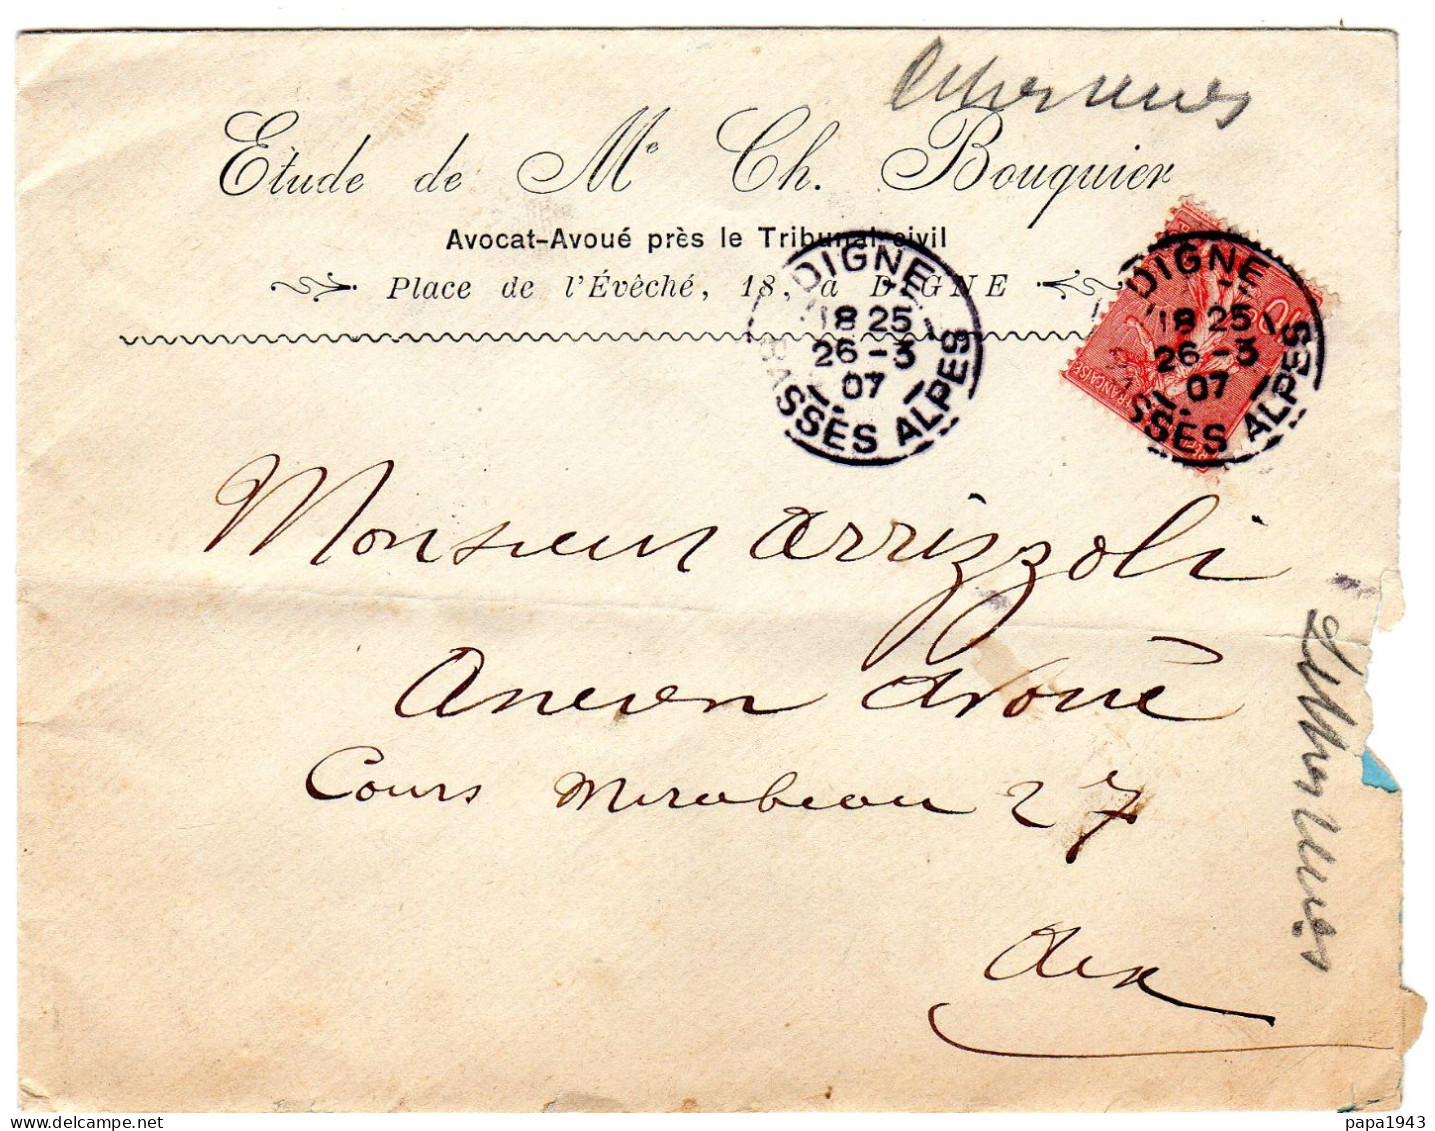 Etude de Me Ch. Bouquier
Avocat-Avoué près le Tribunal civil
Place de l'Évêché, 18, à DIGNE
DIGNE
18 25
26 - 3
07
BASSES ALPES
DIGNE
18 25
26 - 3
07
BASSES ALPES
10
FRANÇAISE
Monsieur Arrizzoli
Ancien Avoué
Cours Mirabeau 27
Aix
papa1943